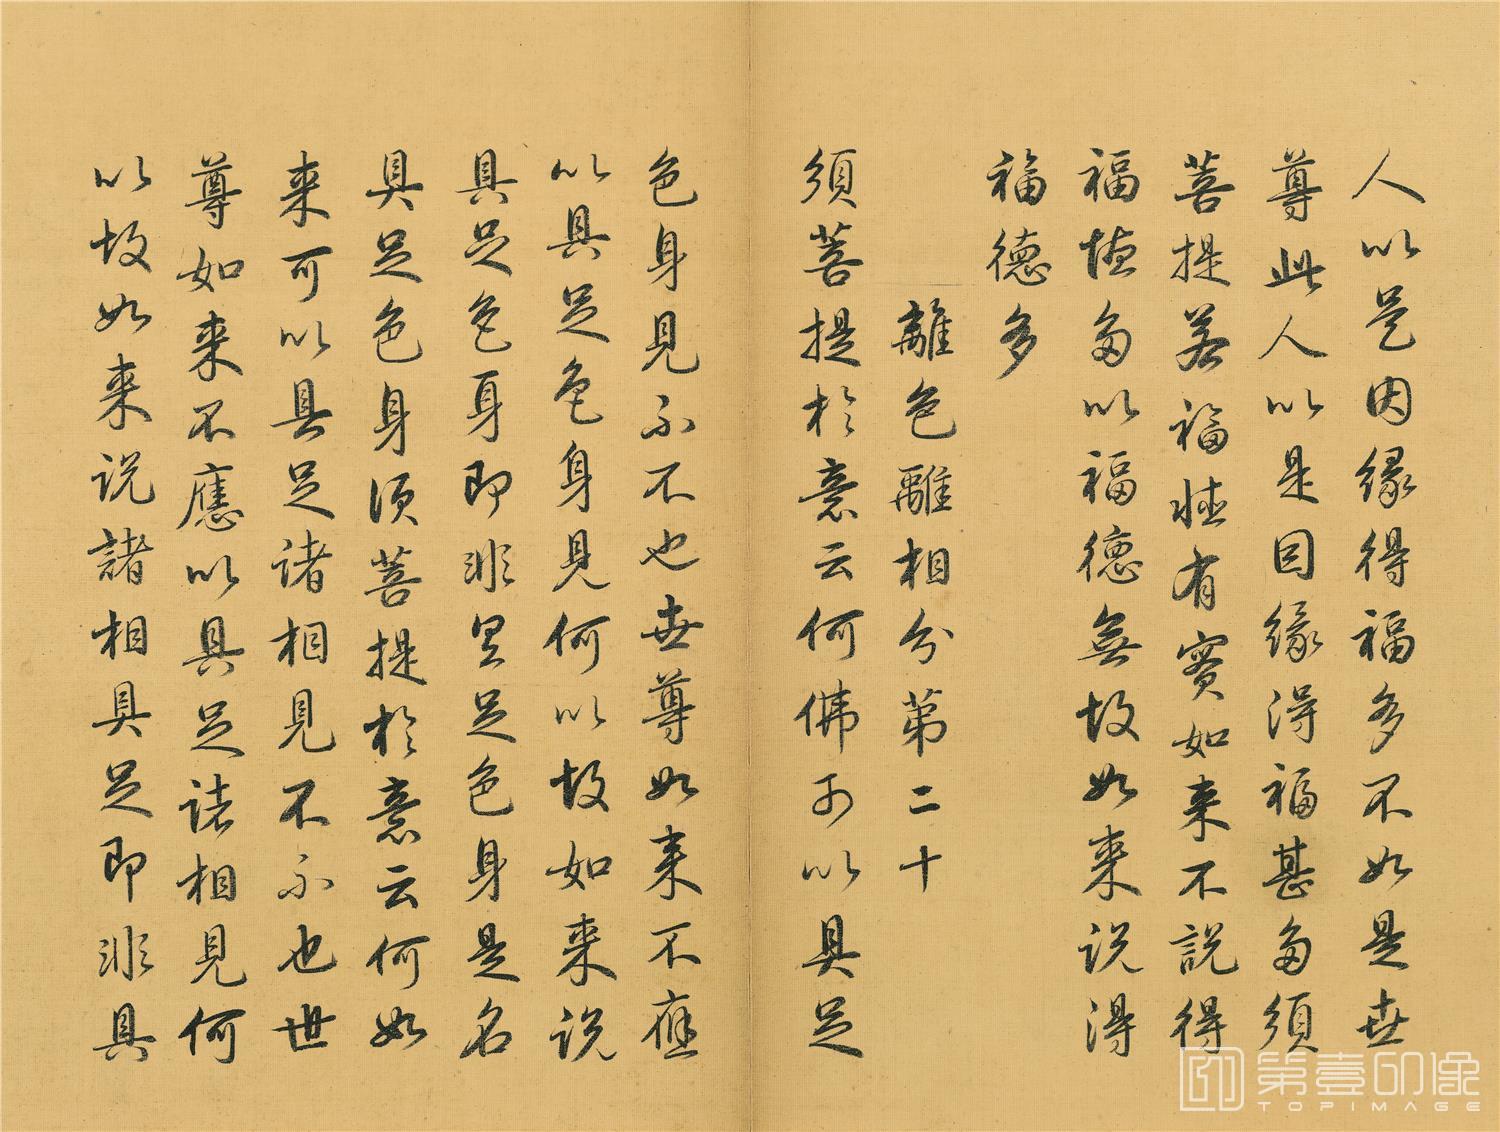 人以是因緣得福多不如是世
尊此人以是因緣得福甚多須
菩提若福德有實如來不說得
福德多以福德無故如來說得
福德多
離色離相分第二十
須菩提於意云何佛可以具足
色身見不不也世尊如來不應
以具足色身見何以故如來說
具足色身即非具足色身是名
具足色身須菩提於意云何如
來可以具足諸相見不不也世
尊如來不應以具足諸相見何
以故如來說諸相具足即非具
第壹印像
TOPIMAGE